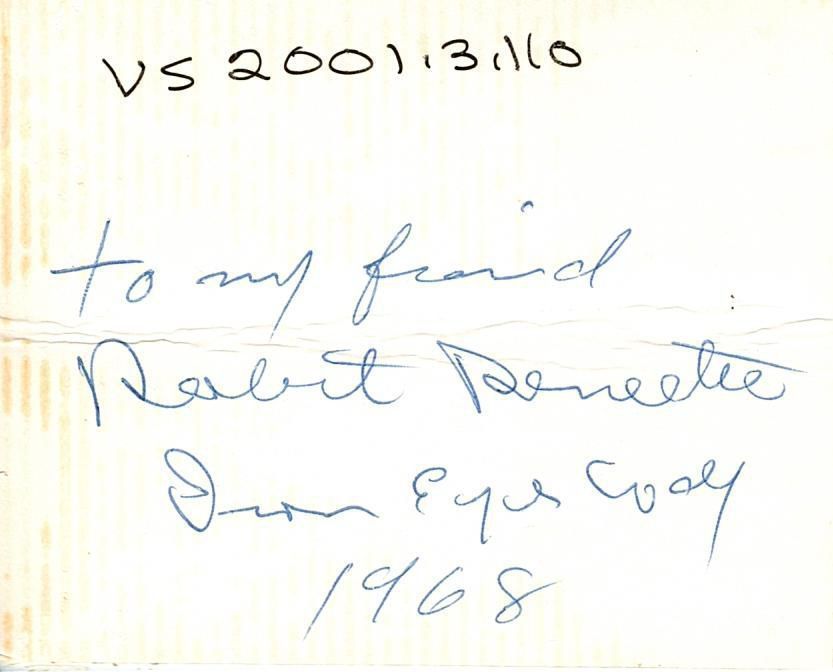 VS 2001.3.110
to my friend
Robert Bennette
Iron Eyes Cody
1968